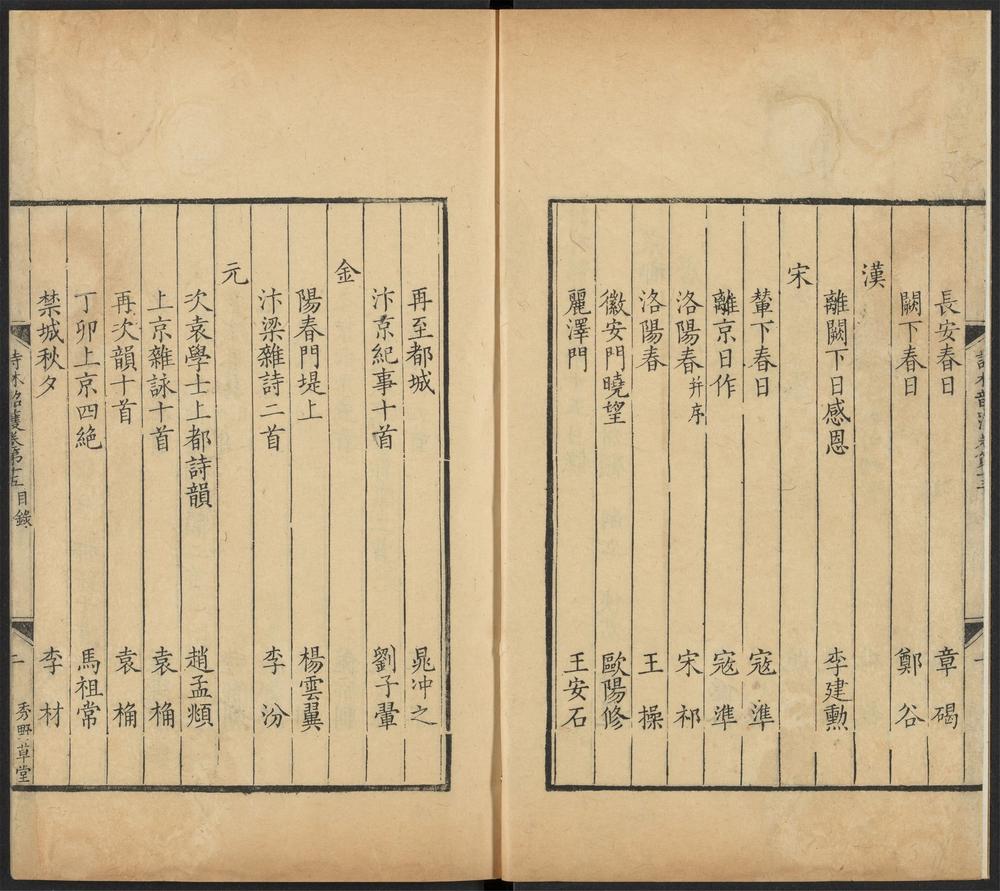 長安春日 章碣
闕下春日 鄭谷
漢
離闕下日感恩 李建勳
宋
輦下春日 寇準
離京日作 寇準
洛陽春并序 宋祁
洛陽春 王操
徽安門曉望 歐陽修
麗澤門 王安石
再至都城 晁冲之
汴京紀事十首 劉子翬
金
陽春門堤上 楊雲翼
汴梁雜詩二首 李汾
元
次袁學士上都詩韻 趙孟頫
上京雜詠十首 袁桷
再次韻十首 袁桷
丁卯上京四絶 馬祖常
禁城秋夕 李材
詩林韶濩卷第十五目錄 二 秀野草堂